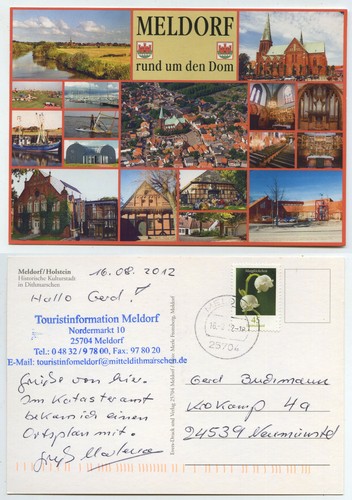 MELDORF
rund um den Dom
Meldorf/Holstein
Historische Kulturstadt
in Dithmarschen
16.08.2012
Hallo Gerd!
Touristinformation Meldorf
Nordermarkt 10
25704 Meldorf
Tel.: 0 48 32/9 78 00, Fax: 97 80 20
E-Mail: touristinfomeldorf@mitteldithmarschen.de
Grüße von hier.
Im Katasteramt
bekam ich einen
Ortsplan mit.
Gruß
45
25704
Gerd
Krokamp 4a
24539 Neumünster